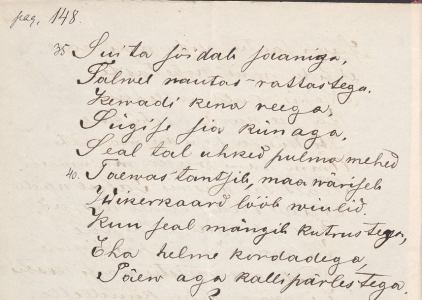 pag. 148.
35 Suita sõidab saaniga,
Talwel raudas-rattastega.
Kewadi kena reega,
Sügise sia kunaga,
Seal tal uhked pulma mehed
40. Taewas tantsib, maa wäriseb
Wikerkaard lööb wiulid
Kun seal mängib kutrustega,
Eha helme kordadega,
Päew aga kallipärlestega.